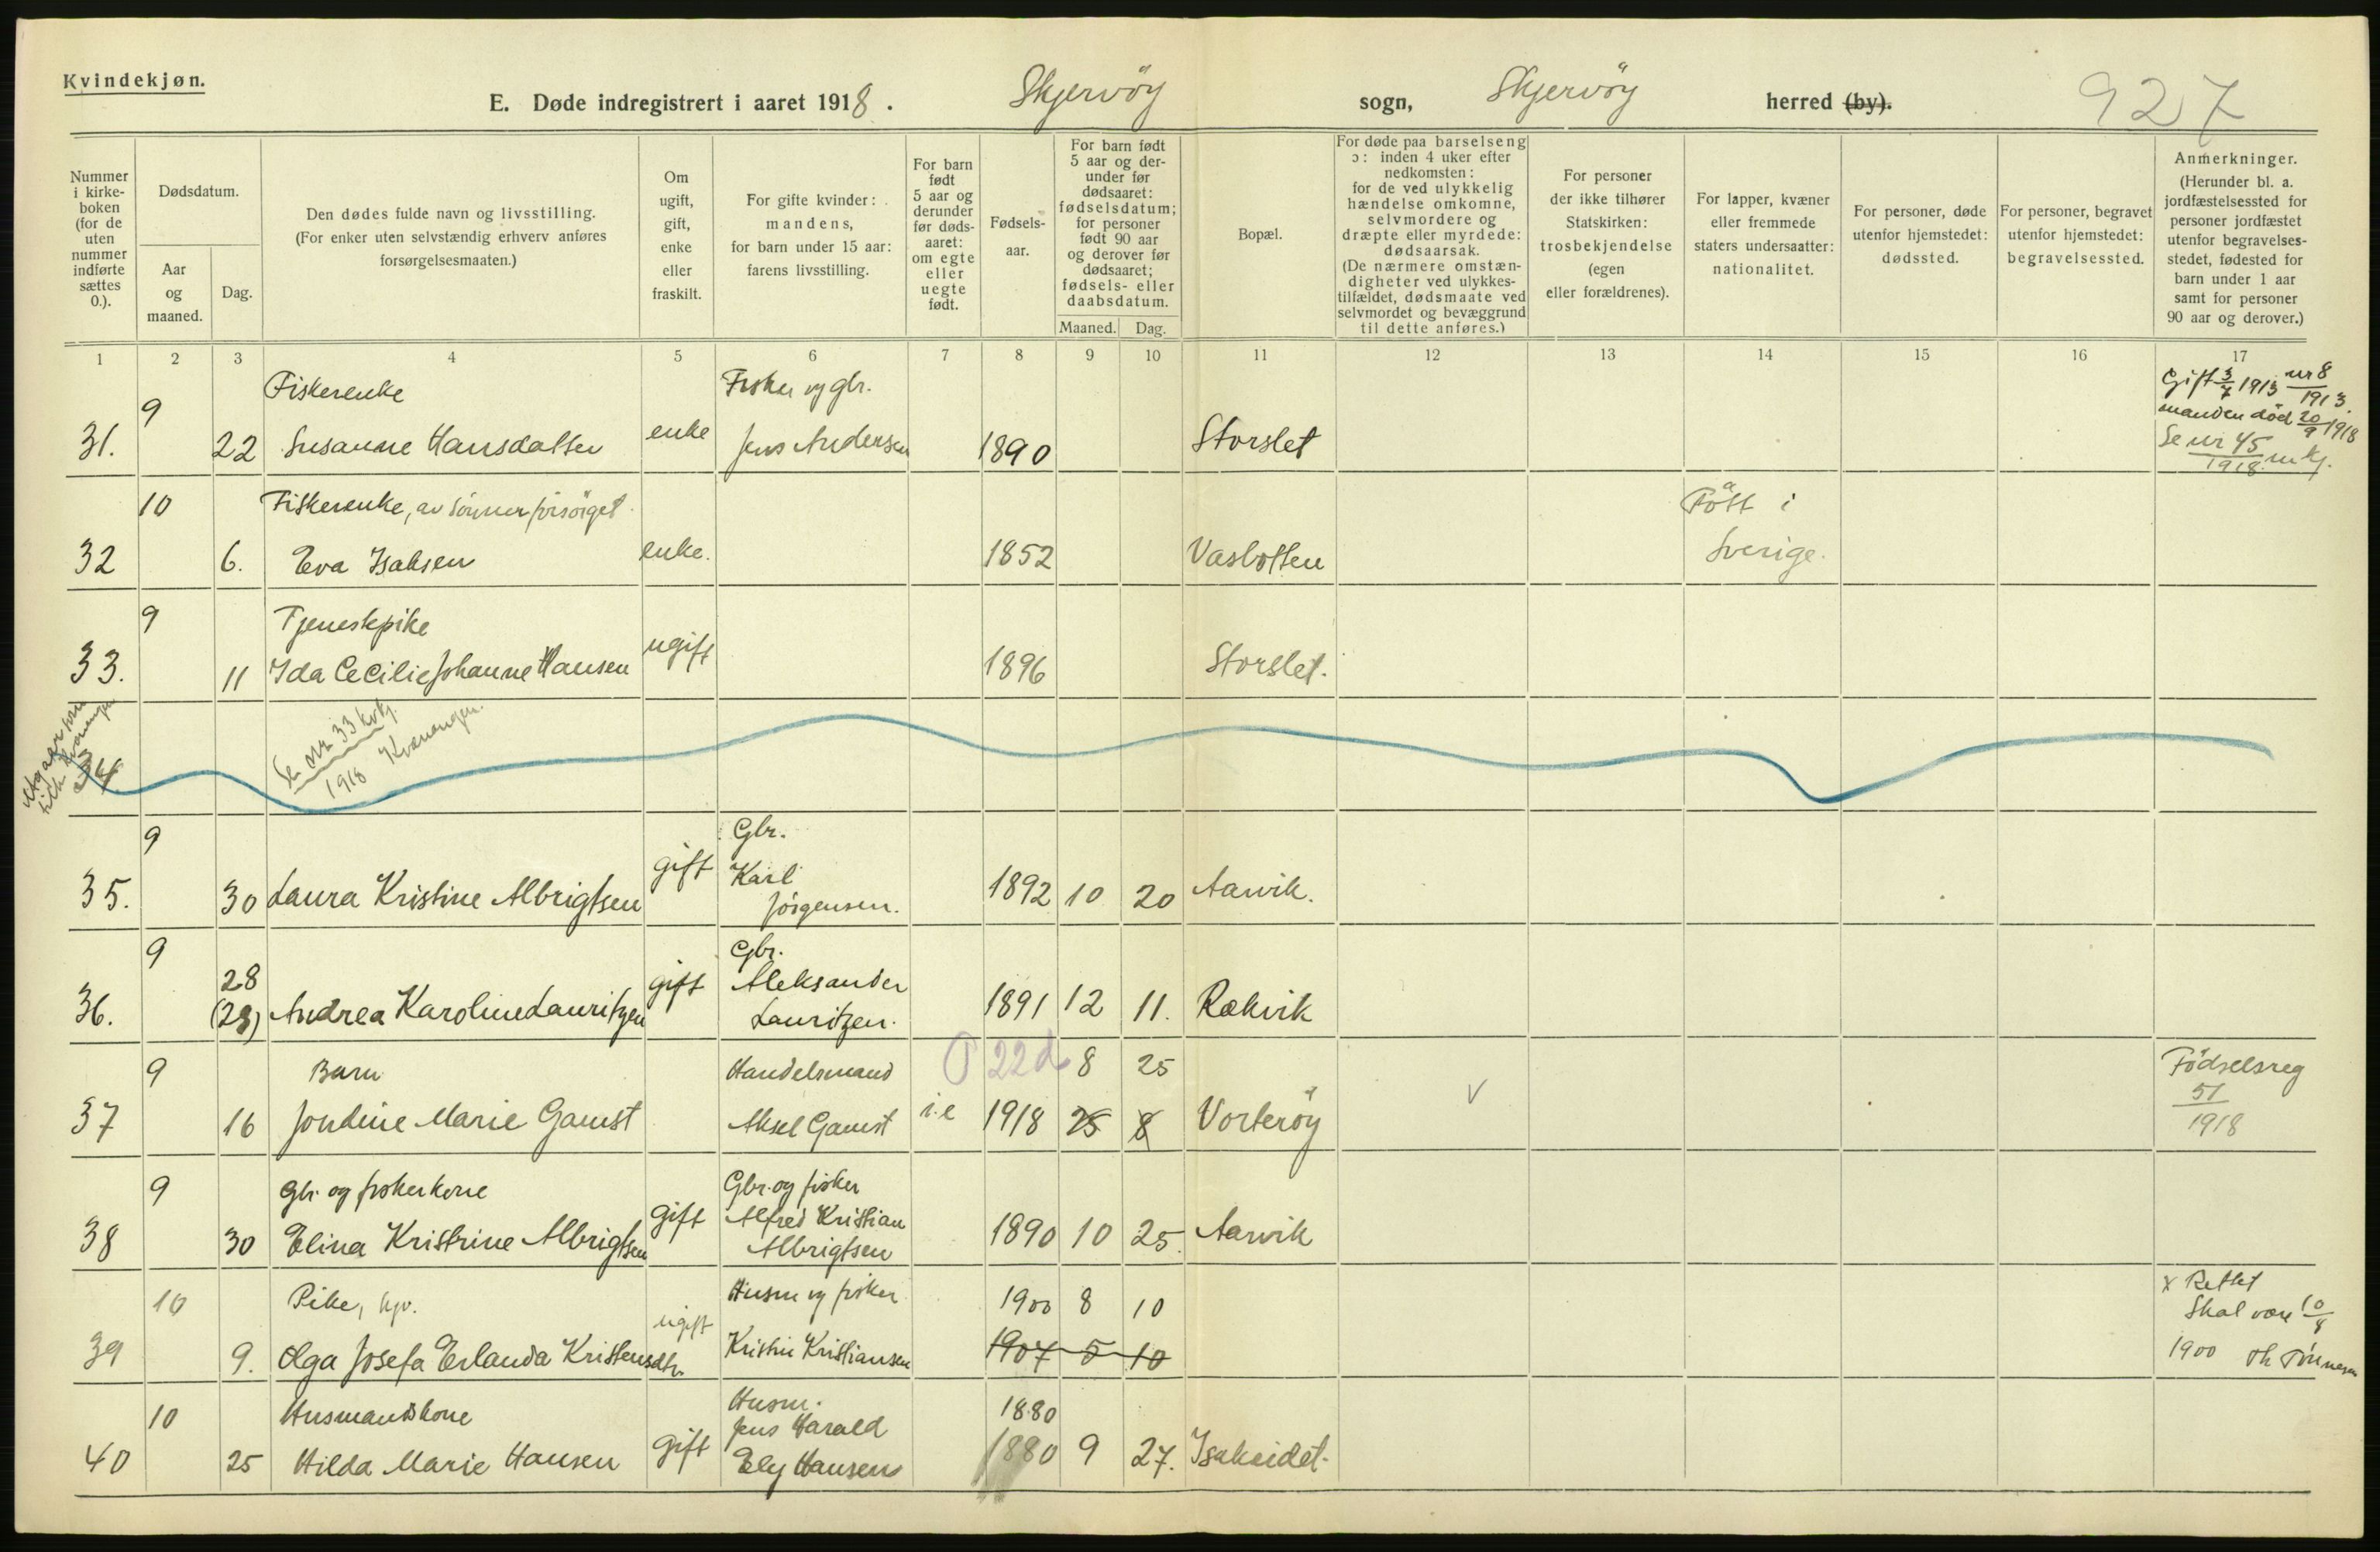 Kvindekjøn.
E. Døde indregistrert i aaret 1918. Skjervöy sogn, Skjervöy herred (by). 927
Nummer i kirke-boken (for de uten nummer indførte sættes 0.).
Dødsdatum.
Aar og maaned.
Dag.
Den dødes fulde navn og livsstilling.
(For enker uten selvstændig erhverv anføres
forsørgelsesmaaten.)
Om ugift, gift, enke eller fraskilt.
For gifte kvinder:
mandens,
for barn under 15 aar:
farens livsstilling.
For barn født 5 aar og derunder før døds-aaret: om egte eller uegte født.
Fødsels-aar.
For barn født 5 aar og der-under før dødsaaret: fødselsdatum; for personer født 90 aar og derover før dødsaaret; fødsels- eller daabsdatum.
Maaned. Dag.
Bopæl.
For døde paa barselseng
ɔ: inden 4 uker efter
nedkomsten:
for de ved ulykkelig
hændelse omkomne,
selvmordere og
dræpte eller myrdede:
dødsaarsak.
(De nærmere omstæn-
digheter ved ulykkes-
tilfældet, dødsmaate ved
selvmordet og bevæggrund
til dette anføres.)
For personer
der ikke tilhører
Statskirken:
trosbekjendelse
(egen
eller forældrenes).
For lapper, kvæner
eller fremmede
staters undersaatter:
nationalitet.
For personer, døde
utenfor hjemstedet:
dødssted.
For personer, begravet
utenfor hjemstedet:
begravelsessted.
Anmerkninger.
(Herunder bl. a.
jordfæstelsessted for
personer jordfæstet
utenfor begravelses-
stedet, fødested for
barn under 1 aar
samt for personer
90 aar og derover.)
1 2 3 4 5 6 7 8 9 10 11 12 13 14 15 16 17
9 Fiskerenke Fisker og gbr. Gift 3/7 1913 nr 8/1913.
manden död 20/9 1918
31. 22 Susanne Hansdatter enke Jens Andersen 1890 Storslet Se nr 45/1918 mkj.
10 Fiskerenke, av sönner forsörget Fött i
32 6. Eva Isaksen enke. 1852 Vasbotten Sverige.
9 Tjenestepike
33. 11 Ida Cecilie Johanne Hansen ugift 1896 Storslet.
34 Se nr. 33 kvkj. 1918 Kvænangen.
9 Gbr.
35. 30 Laura Kristine Albrigtsen gift Karl Jörgensen. 1892 10 20 Aarvik.
9 28 Gbr.
36. (28) Andrea Karoline Lauritzen gift Aleksander Lauritzen. 1891 12 11. Rækvik
9 Barn Handelsmand 22d 8 25 Födselsreg
37 16 Jordine Marie Gamst Aksel Gamst i.e 1918 25 8 Vorteröy V 51/1918
9 Gbr. og fiskerkone Gbr. og fisker
38 30 Elina Kristine Albrigtsen gift Alfred Kristian Albrigtsen 1890 10 25. Aarvik
10 Pike, hjv. Husm og fisker 1900 8 10 x Rettet
Skal være 10/8
39 9. Olga Josefa Erlanda Kristensdtr. ugift Kristen Kristiansen 1907 5 10 1900 Th Tönnesen
10 Husmandskone Husm. 1880
40 25 Hilda Marie Hansen gift Jens Harald Ely Hansen 1880 9 27. Isakeidet.